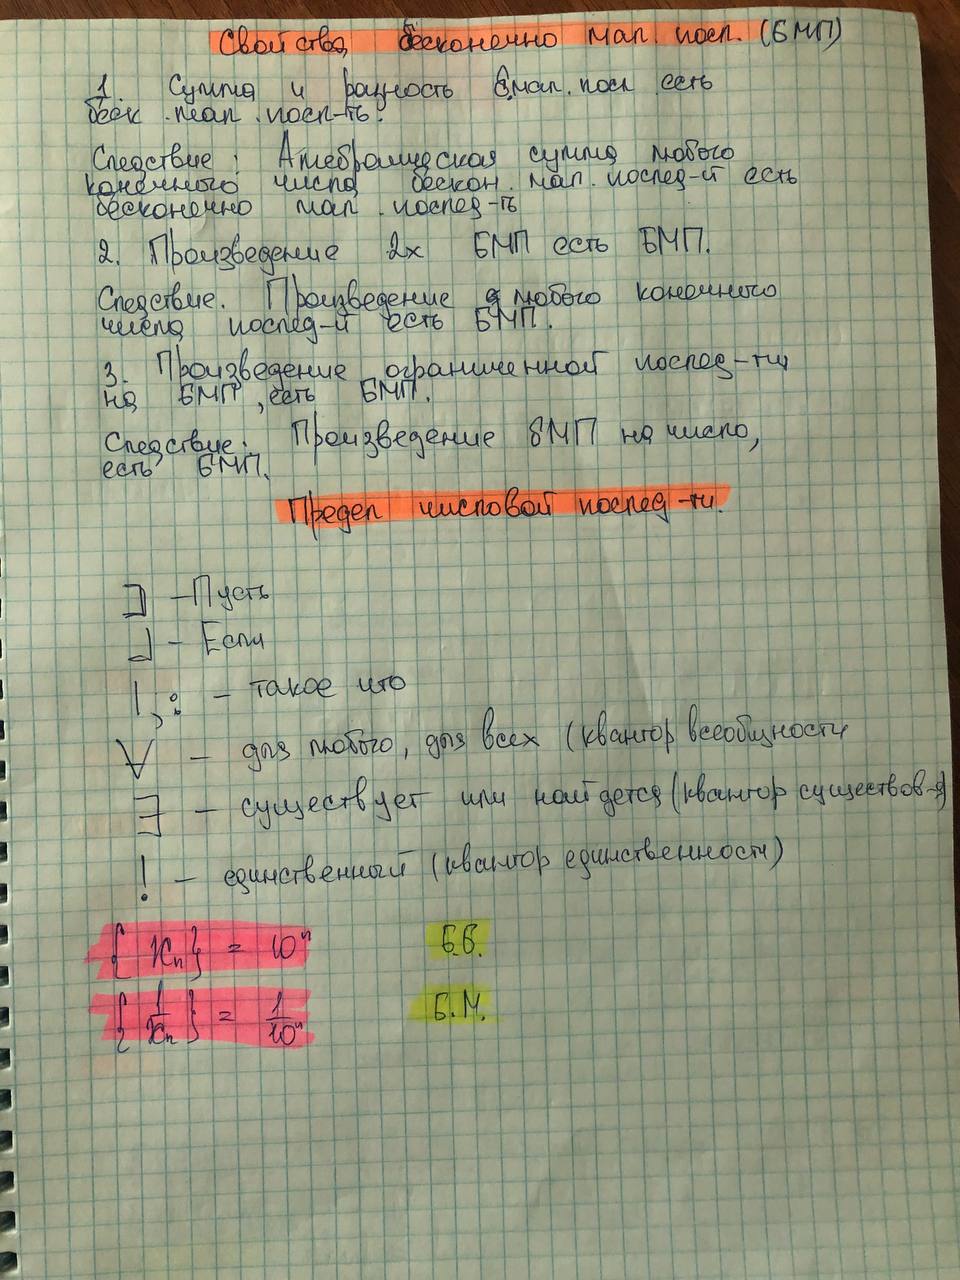 Свойства бесконечно мал. посл. (БМП)
1. Сумма и разность б.мал. посл есть
беск. мал. посл-ть.
Следствие: Алгебраическая сумма любого
конечного числа бескон. мал. послед-й есть
бесконечно мал. послед-ть
2. Произведение 2х БМП есть БМП.
Следствие. Произведение любого конечного
числа послед-й есть БМП.
3. Произведение ограниченной послед-ти
на БМП, есть БМП.
Следствие: Произведение БМП на число,
есть БМП.
Предел числовой послед-ти.
⊐ - Пусть
⅃ - Если
|, : - такое что
∀ - для любого, для всех (квантор всеобщности
∃ - существует или найдется (квантор существов-я)
! - единственный (квантор единственности)
{xₙ} = 10ⁿ Б.Б.
{1/xₙ} = 1/10ⁿ Б.М.